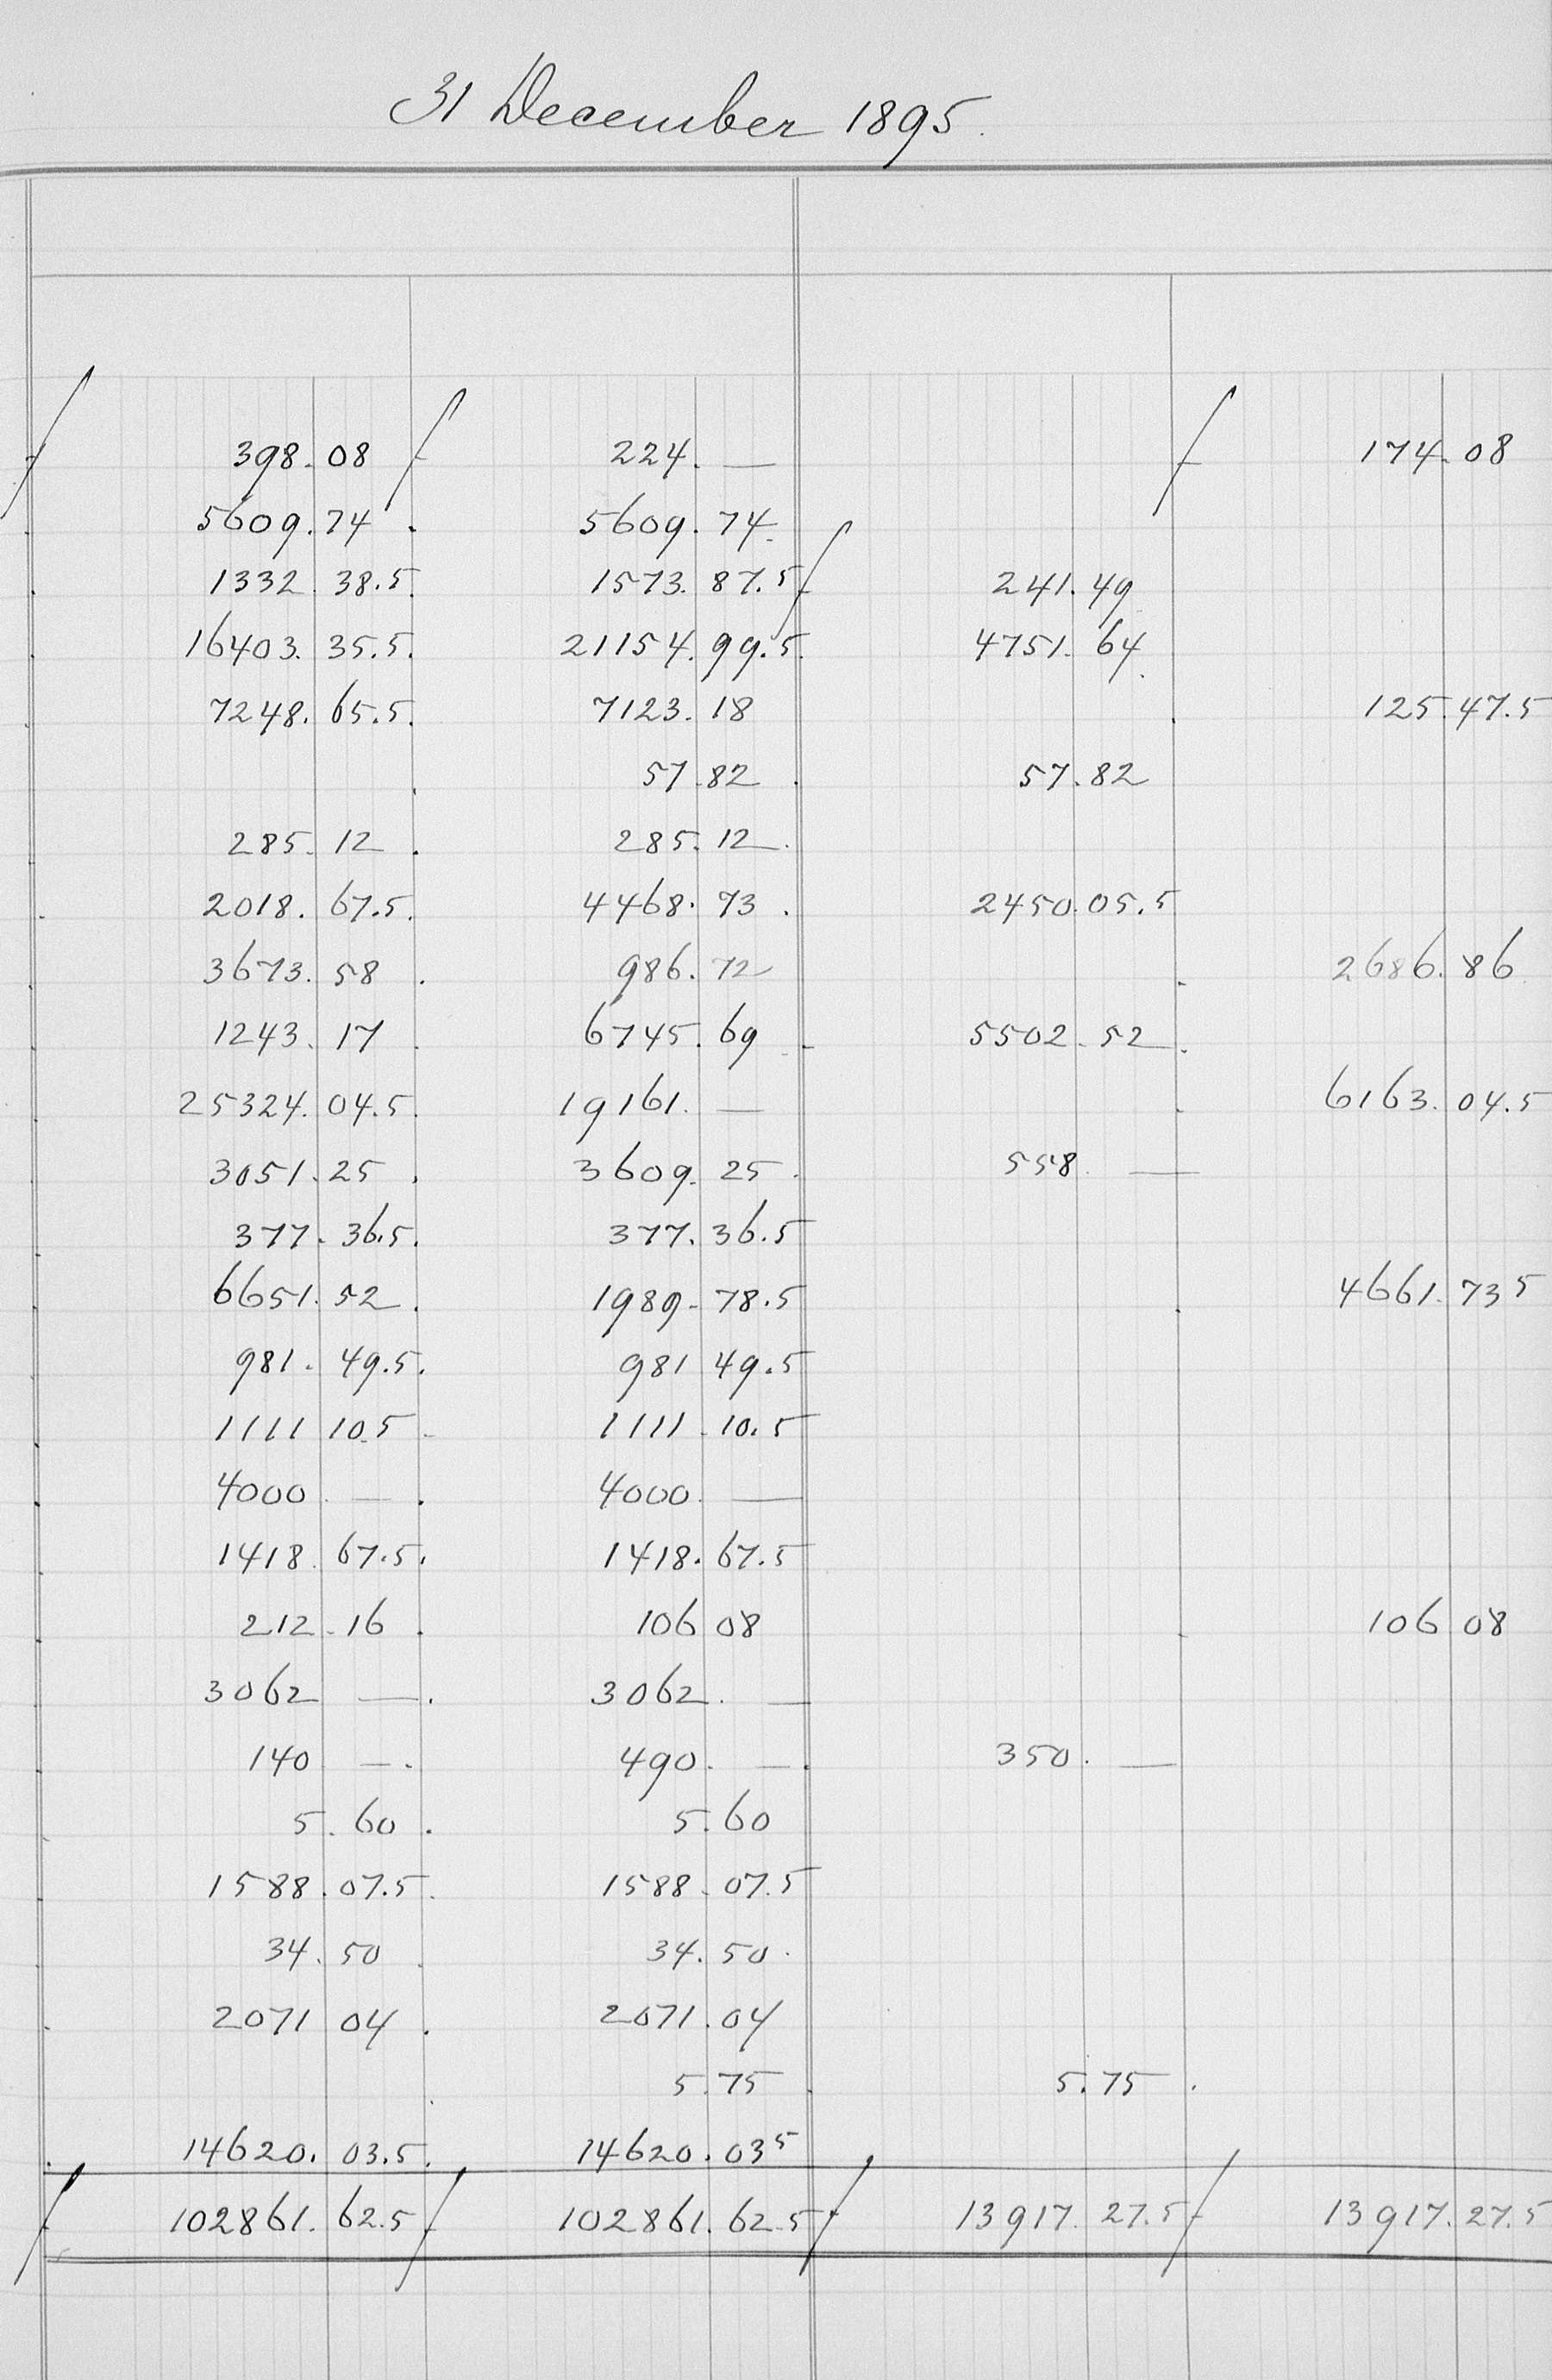 31 December 1895.
ƒ 398.08 ƒ 224.— ƒ 174.08
5609.74 . 5609.74
1332 38.5 1573.87.5 ƒ 241.49
16403.35.5. 21154.99.5 4751.64
7248.65.5. 7123.18 125.47.5
57.82 57.82
285.12 285.12
2018.67.5. 4468.73 2450.05.5
3673.58 986.72 2686.86
1243.17 6745.69 5502.52
25324.04.5 19161.— 6163.04.5
3051.25 3609.25 558.—
377.36.5. 377.36.5
6651.52 1989.78.5 4661.73 5
981.49.5. 981 49.5
1111 10.5 1111.10.5
4000.— 4000.—
1418.67.5. 1418.67.5
212.16 106 08 106 08
3062 —. 3062.—
140 —. 490.— 350.—
5.60 5.60
1588.07.5. 1588.07.5
34.50 34.50
2071 04 2071.04
5.75 5.75
14620.03.5. 14620.03 5
ƒ 102861.62.5 ƒ 102861.62.5 ƒ 13917.27.5 ƒ 13917.27.5